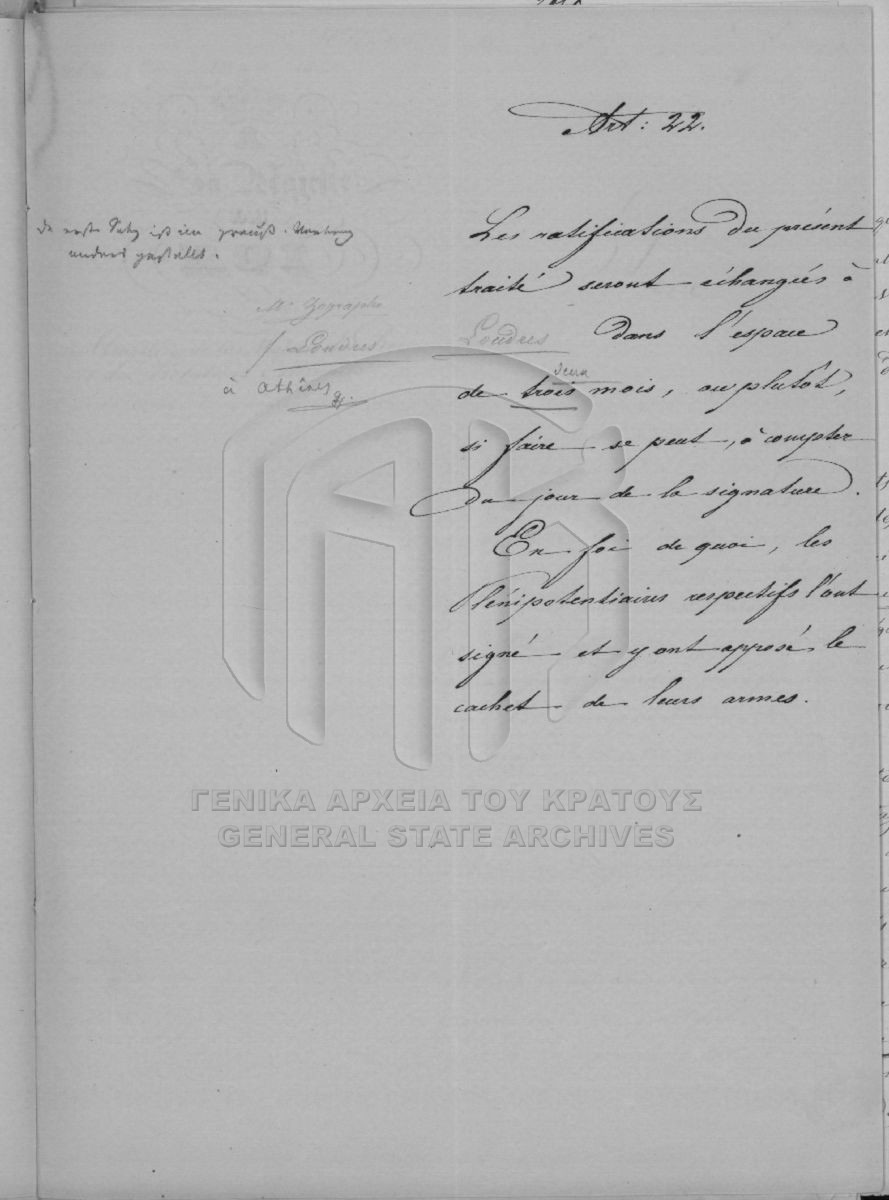 Art: 22.
Les ratifications du présent
traité seront échangées à
Londres dans l'espace
deux
de trois mois, ou plutôt,
si faire se peut, à compter
du jour de la signature.
En foi de quoi, les
Plénipotentiaires respectifs l'ont
signé et y ont apposé le
cachet de leurs armes.
erste Satz ist im preuß.
anders gestellt.
Mr Zographe
Londres
à Athènes
ΓΕΝΙΚΑ ΑΡΧΕΙΑ ΤΟΥ ΚΡΑΤΟΥΣ
GENERAL STATE ARCHIVES